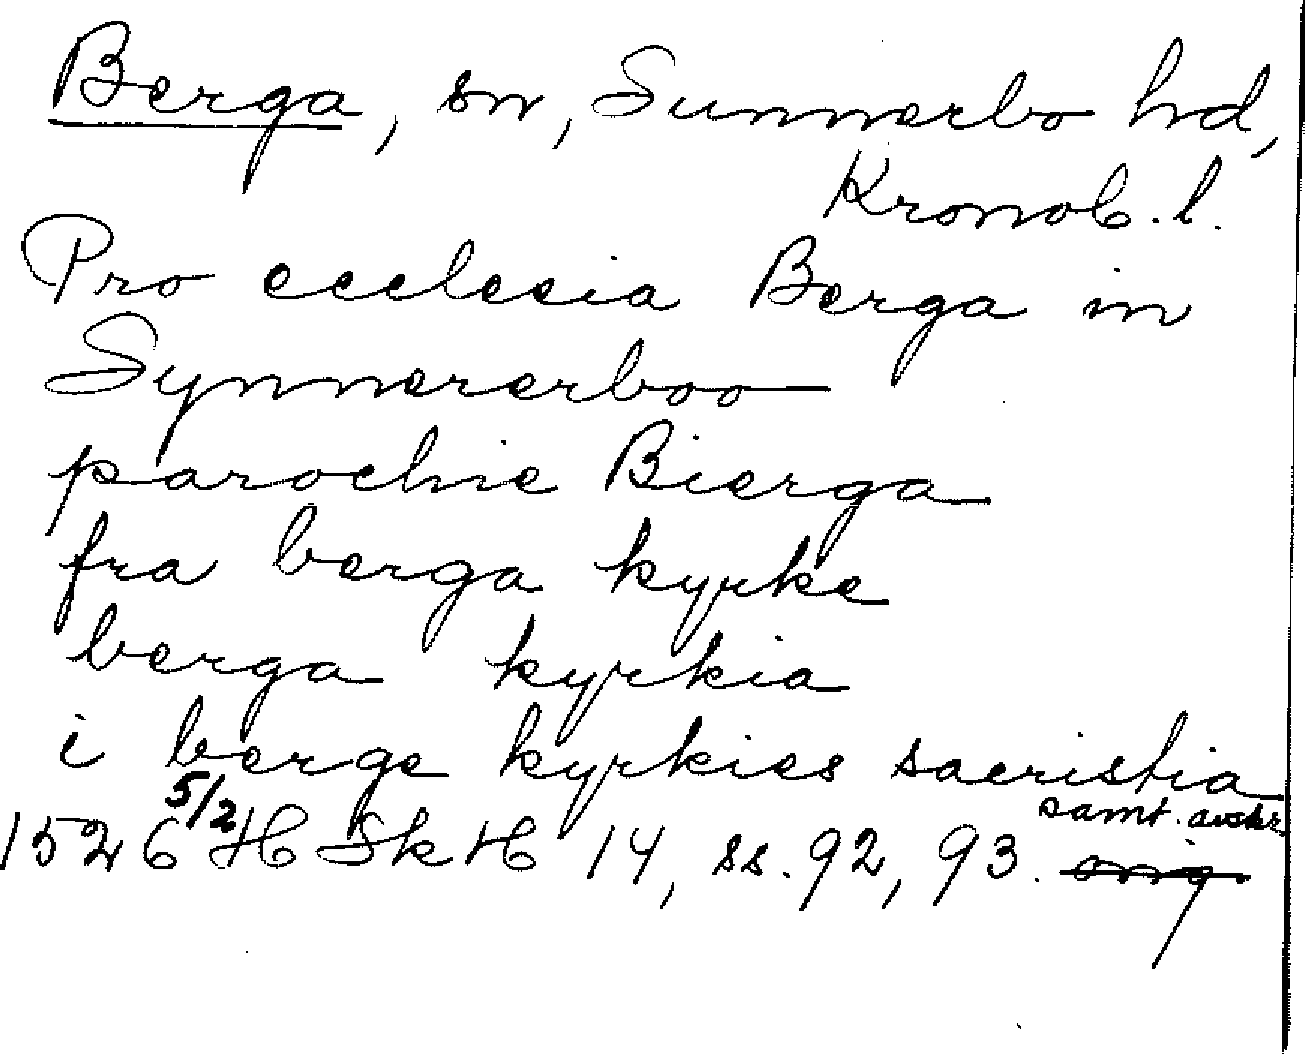 Berga, sn, Sunnerbo hd,
Kronob. l.
Pro ecclesia Berga in
Synnererboo
parochie Bierga
fra berga kyrke
berga kyrkia
i berge kyrkies sacristia
1526 5/2 HSkH 14, ss. 92, 93. samt. avskr.
orig